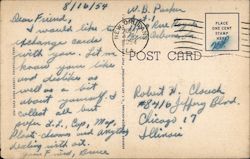 8/16/54
Dear Friend,
I would like to
exchange cards
with you. Let me
know your likes
and dislikes as
well as a bit
about yourself. I
collect all but
prefer S.C., Cap, Map,
Plant, clowns and anything
dealing with art.
your Friend, Bruce
W. B. Parker
Rue
PLACE
ONE CENT
STAMP
HERE
POST CARD
Robert W. Clouch
#8416 Jeffery Blvd.
Chicago 17
Illinois